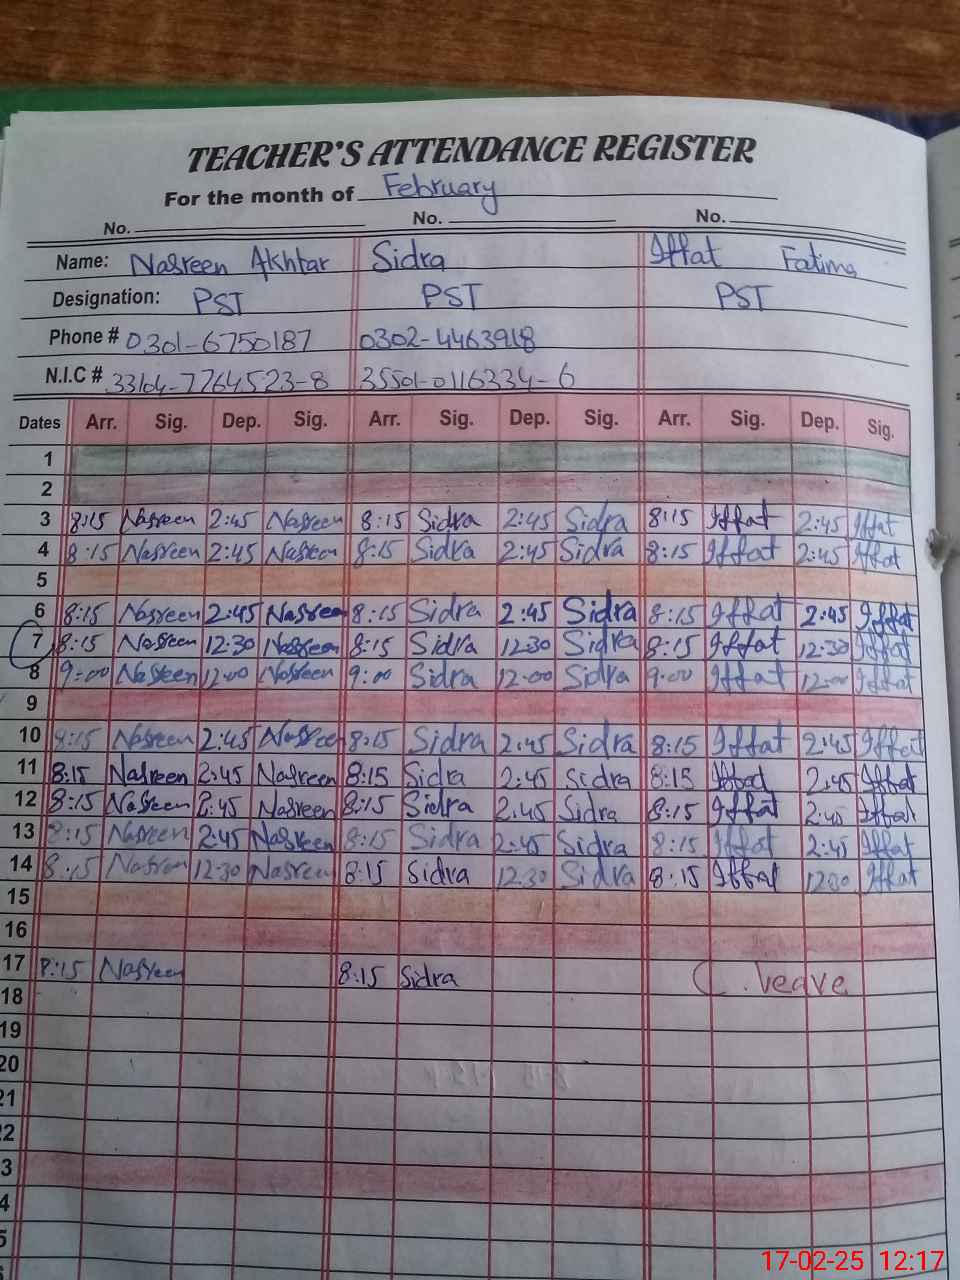 TEACHER'S ATTENDANCE REGISTER
For the month of February
No. No. No.
Name: Nasreen Akhtar Sidra Iffat Fatima
Designation: PST PST PST
Phone # 0301-6750187 0302-4463918
N.I.C # 33104-7764523-8 35501-0116334-6
Dates Arr. Sig. Dep. Sig. Arr. Sig. Dep. Sig. Arr. Sig. Dep. Sig.
1
2
3 8:15 Nasreen 2:45 Nasreen 8:15 Sidra 2:45 Sidra 8:15 Iffat 2:45 Iffat
4 8:15 Nasreen 2:45 Nasreen 8:15 Sidra 2:45 Sidra 8:15 Iffat 2:45 Iffat
5
6 8:15 Nasreen 2:45 Nasreen 8:15 Sidra 2:45 Sidra 8:15 Iffat 2:45 Iffat
7 8:15 Nasreen 12:30 Nasreen 8:15 Sidra 12:30 Sidra 8:15 Iffat 12:30 Iffat
8 9:00 Nasreen 12:00 Nasreen 9:00 Sidra 12:00 Sidra 9:00 Iffat 12:00 Iffat
9
10 8:15 Nasreen 2:45 Nasreen 8:15 Sidra 2:45 Sidra 8:15 Iffat 2:45 Iffat
11 8:15 Nasreen 2:45 Nasreen 8:15 Sidra 2:45 Sidra 8:15 Iffat 2:45 Iffat
12 8:15 Nasreen 2:45 Nasreen 8:15 Sidra 2:45 Sidra 8:15 Iffat 2:45 Iffat
13 8:15 Nasreen 2:45 Nasreen 8:15 Sidra 2:45 Sidra 8:15 Iffat 2:45 Iffat
14 8:15 Nasreen 12:30 Nasreen 8:15 Sidra 12:30 Sidra 8:15 Iffat 12:30 Iffat
15
16
17 8:15 Nasreen 8:15 Sidra C. leave
18
19
20
21
22
3
4
5
17-02-25 12:17